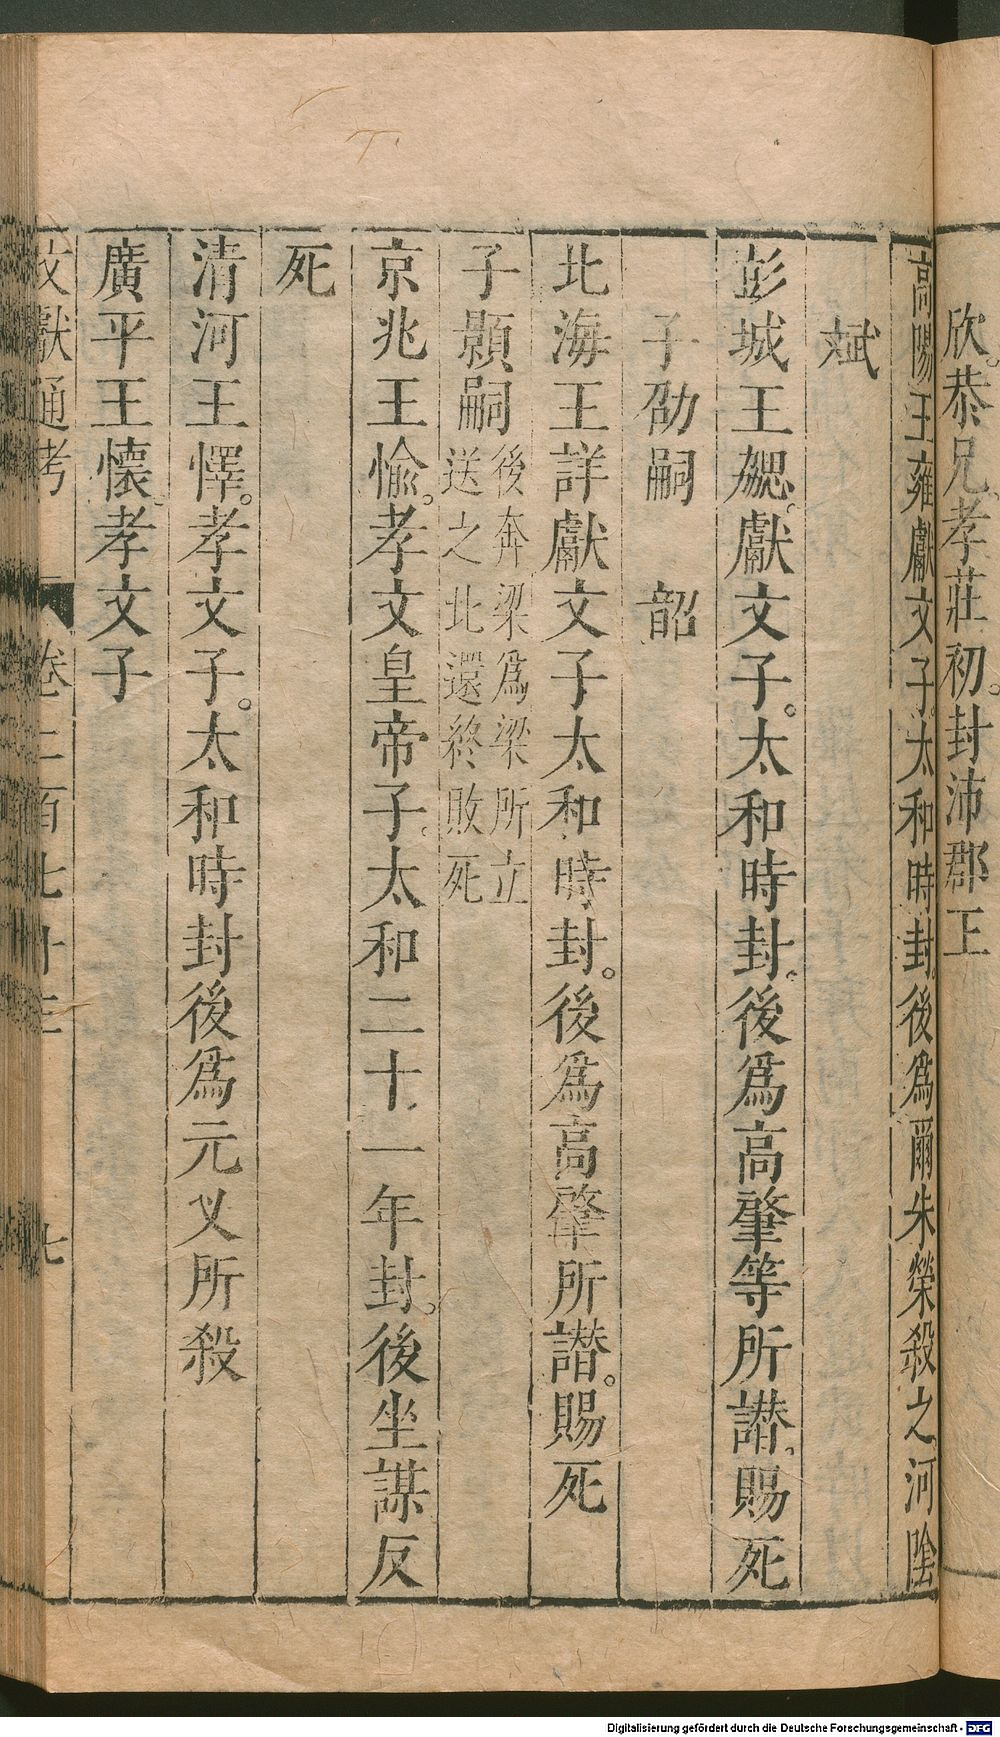 欣。恭兄。孝莊初。封沛郡王
高陽王雍獻文子。太和時封。後爲爾朱榮殺之河陰
斌
彭城王勰。獻文子。太和時封。後爲高肇等所譛。賜死
子劭嗣 韶
北海王詳獻文子太和時封。後爲高肇所譛。賜死
子顥嗣後奔梁爲梁所立
送之北還終敗死
京兆王愉。孝文皇帝子。太和二十一年封。後坐謀反
死
清河王懌。孝文子。太和時封後爲元乂所殺
廣平王懷。孝文子
文獻通考 卷二百七十三 七
Digitalisierung gefördert durch die Deutsche Forschungsgemeinschaft - DFG